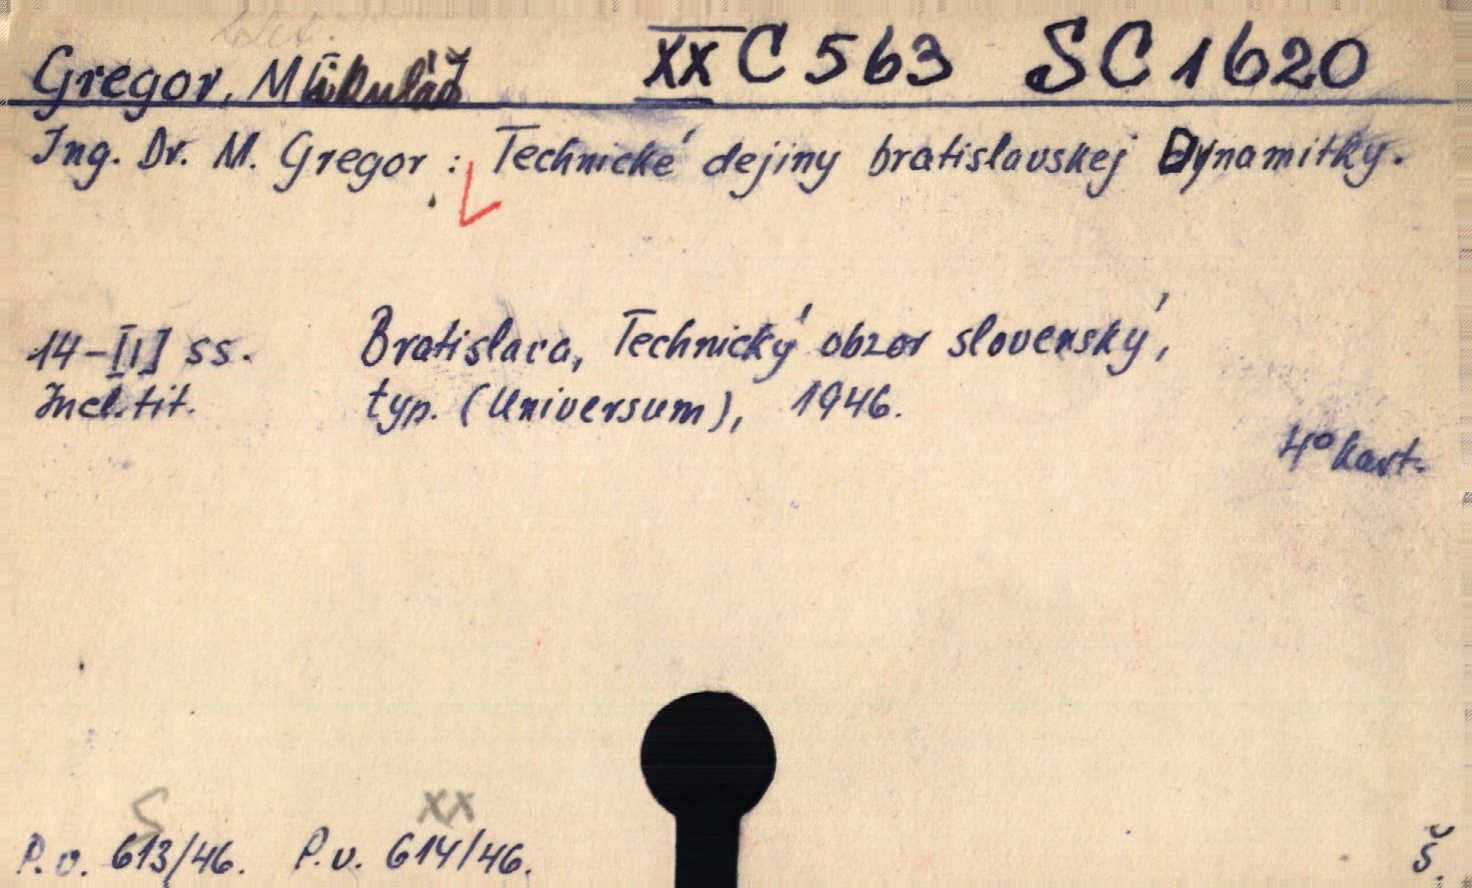 Gregor, Mikuláš XX C 563 SC 1620
Ing. Dr. M. Gregor: Technické dejiny bratislavskej Dynamitky.
14-[II] ss. Bratislava, Technický obzor slovenský,
Incl. tit. typ. (Universum), 1946.
4° kart.
S XX
P.v. 613/46. P.v. 614/46. Š.